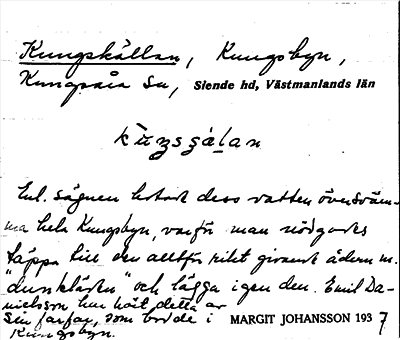 Kungskällan, Kungsbyn,
Kungsåra sn, Siende hd, Västmanlands län
Enl. sägnen hotade dess vatten översväm-
ma hela Kungsbyn, varför man nödgades
täppa till den alltför rikt givande ådern m.
"dunkläder" och lägga igen den. Emil Da-
nielsson har hört detta av
sin farfar, som bodde i MARGIT JOHANSSON 1937
Kungsbyn.